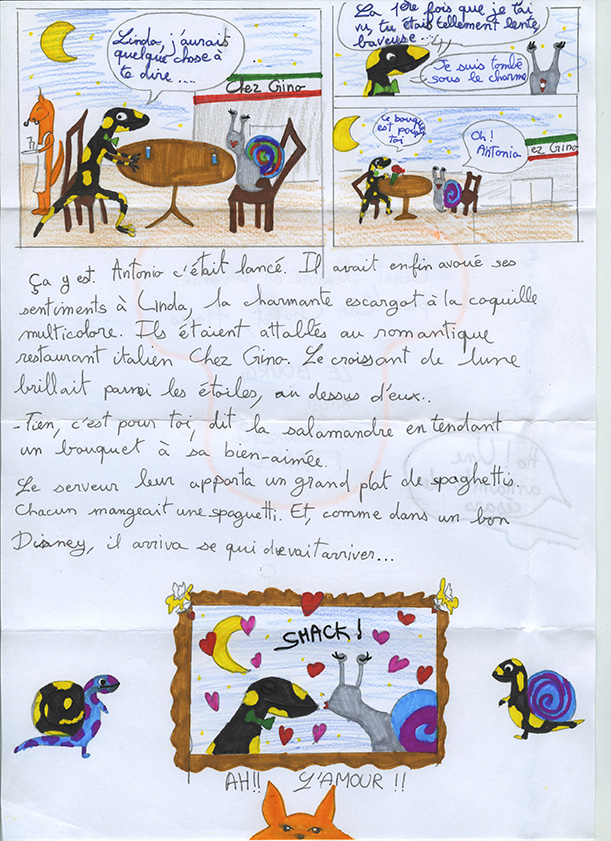 Linda, j'aurais
quelque chose à
te dire ....
Chez Gino
La 1ère fois que je t'ai
vu, tu étais tellement lente,
baveuse...
Je suis tombé
sous le charme
Ce bouquet
est pour
toi
Oh!
Antonio
ez Gino
Ça y est. Antonio c'était lancé. Il avait enfin avoué ses
sentiments à Linda, la charmante escargot à la coquille
multicolore. Ils étaient attablés au romantique
restaurant italien Chez Gino. Le croissant de lune
brillait parmi les étoiles, au dessus d'eux..
-Tien, c'est pour toi, dit la salamandre en tendant
un bouquet à sa bien-aimée.
Le serveur leur apporta un grand plat de spaghettis.
Chacun mangeait une spaguetti. Et, comme dans un bon
Disney, il arriva se qui devait arriver...
SMACK!
AH!! L'AMOUR !!